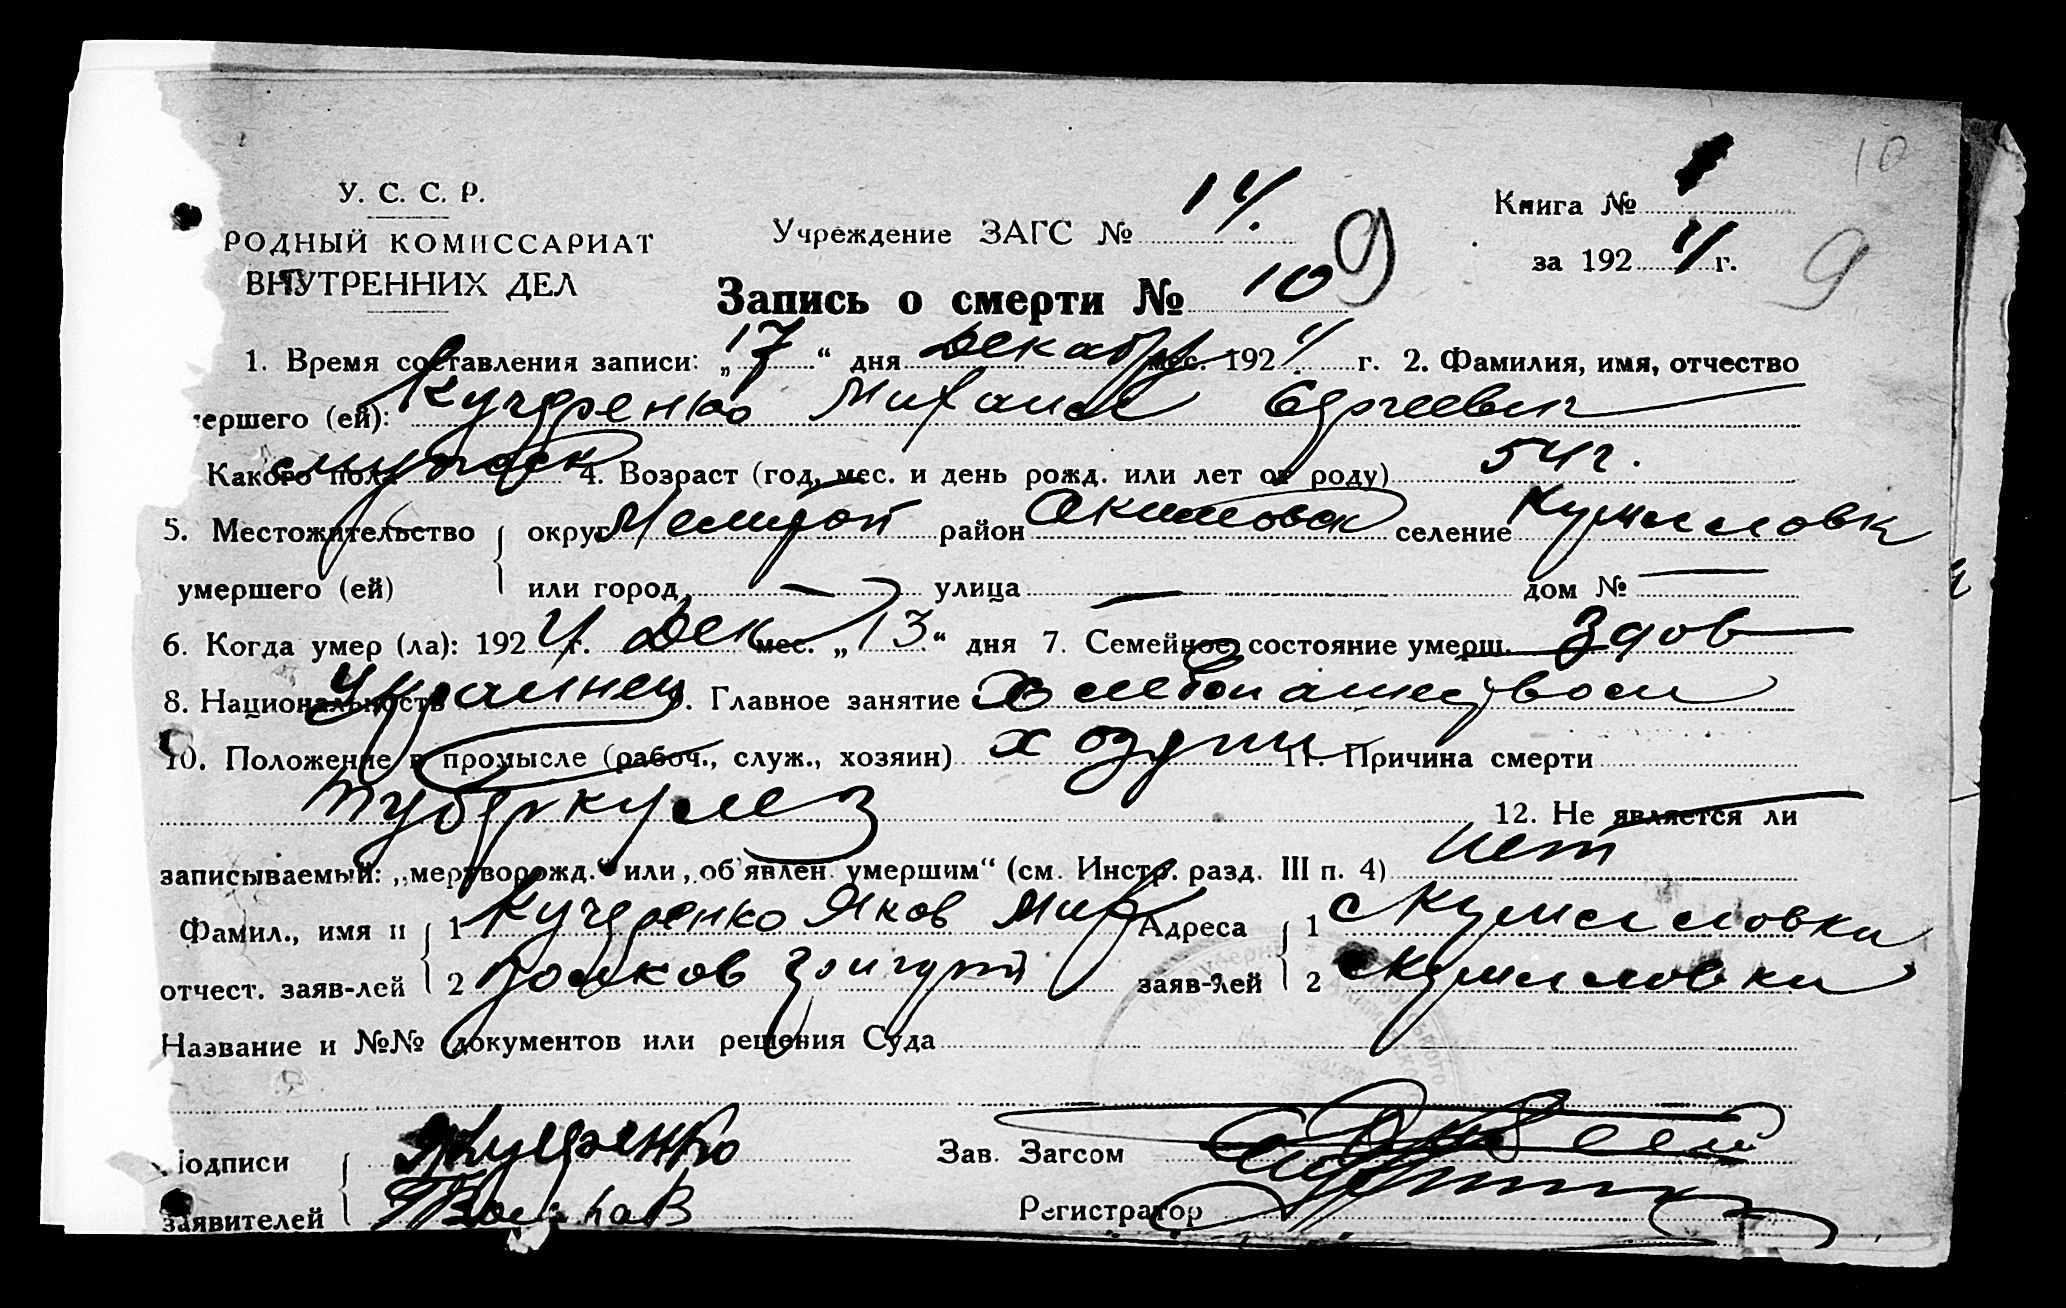 10
У. С. С. Р.
РОДНЫЙ КОМИССАРИАТ
ВНУТРЕННИХ ДЕЛ
Учреждение ЗАГС № 14.
Книга №
за 1924 г.
9
Запись о смерти № 10 9
1. Время составления записи: „17“ дня Декабр мес. 1924 г. 2. Фамилия, имя, отчество
ершего (ей): Кучеренко Михаил Сергеевич
Какого пола 4. Возраст (год, мес. и день рожд. или лет от роду) 54 г.
5. Местожительство округ Мелитоп район Акимовск селение
умершего (ей) или город — улица — дом № —
6. Когда умер (ла): 1924 г. Дек мес. „13“ дня 7. Семейное состояние умерш. Вдов
8. Национальность Украинец 9. Главное занятие Хлебопашеством
10. Положение в промысле (рабоч., служ., хозяин) хозяин 11. Причина смерти
туберкулез 12. Не является ли
записываемый: „мертворожд.“ или „об'явлен умершим“ (см. Инстр. разд. III п. 4) нет
Фамил., имя и 1 Кучеренко Яков Мих Адреса 1
отчест. заяв-лей 2 заяв-лей 2
Название и №№ документов или решения Суда
Подписи Зав. Загсом
заявителей Регистратор